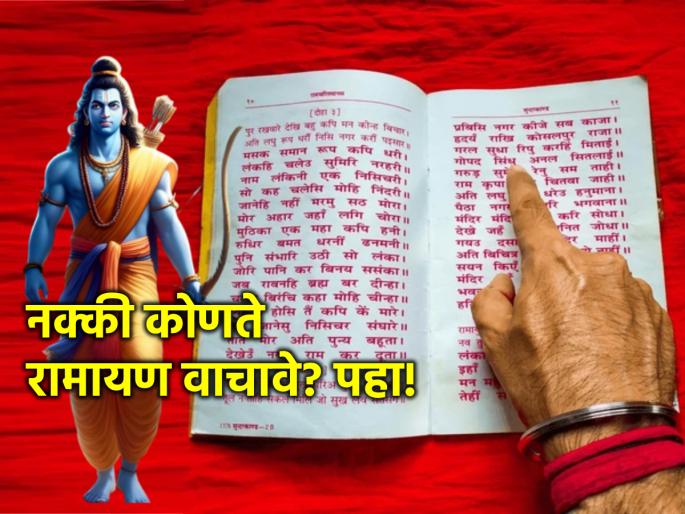 १०
रामचरितमानस
[दोहा ३]
पुर रखवारे देखि बहु कपि मन कीन्ह बिचार।
अति लघु रूप धरौं निसि नगर करौं पइसार॥
मसक समान रूप कपि धरी।
लंकहि चलेउ सुमिरि नरहरी॥
नाम लंकिनी एक निसिचरी।
सो कह चलेसि मोहि निंदरी॥
जानेहि नहीं मरमु सठ मोरा।
मोर अहार जहाँ लगि चोरा॥
मुठिका एक महा कपि हनी।
रुधिर बमत धरनीं ढनमनी॥
पुनि संभारि उठी सो लंका।
जोरि पानि कर बिनय ससंका॥
जब रावनहि ब्रह्म बर दीन्हा।
बिरंचि कहा मोहि चीन्हा॥
होसि तैं कपि कें मारे।
जानेसु निसिचर संघारे॥
मोर अति पुन्य बहूता।
देखेउँ राम कर दूता॥
सुन्दरकाण्ड—2B
सुन्दरकाण्ड
११
प्रबिसि नगर कीजे सब काजा।
हृदयँ राखि कोसलपुर राजा॥
गरल सुधा रिपु करहिं मिताई।
गोपद सिंधु अनल सितलाई॥
गरुड़ रेनु सम ताही।
राम कृपा चितवा जाही॥
अति लघु धरेउ हनुमाना।
पैठा भगवाना॥
मंदिर मंदिर करि सोधा।
देखे जहँ जोधा॥
गयउ दसा माहीं।
अति बिचित्र नाहीं॥
सयन किएँ
मंदिर
भव
लंका
इहाँ
मन
तेहीं
नक्की कोणते
रामायण वाचावे? पहा!